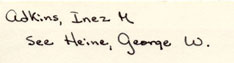 Adkins, Inez M
See Heine, George W.